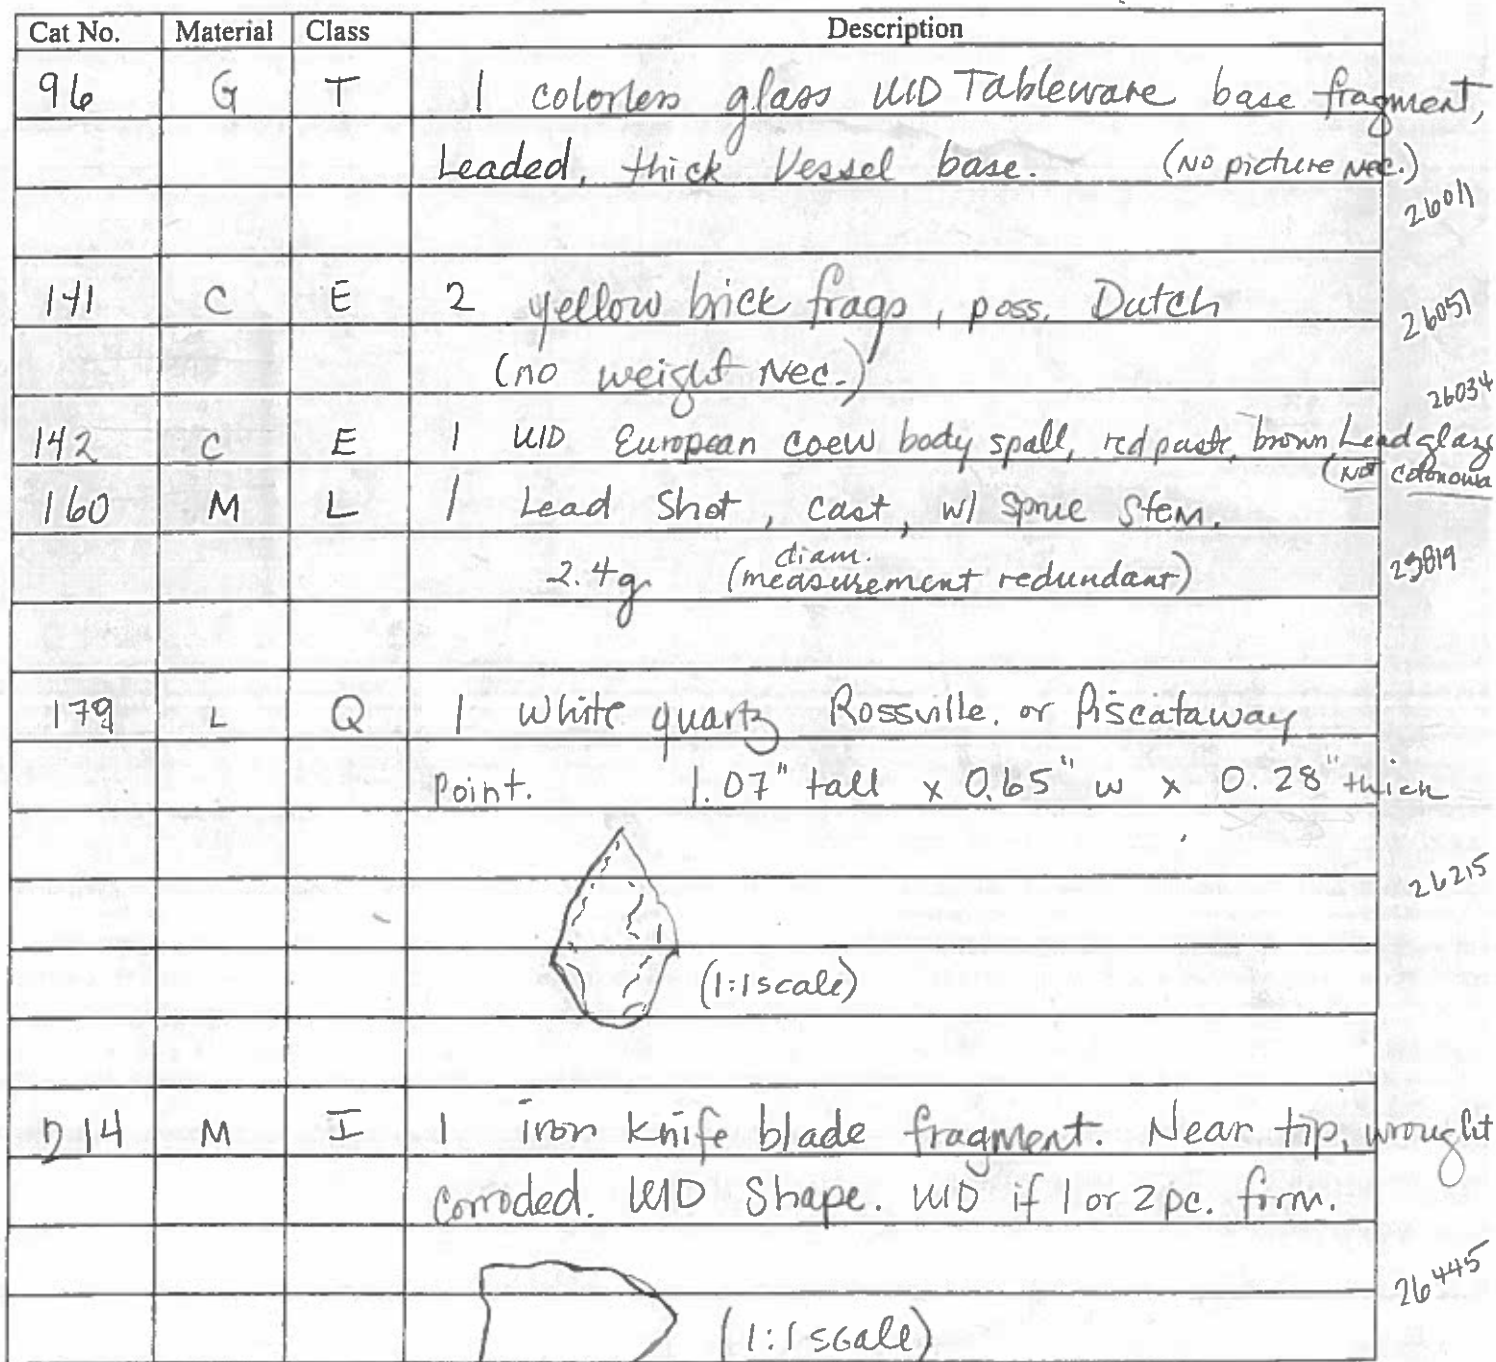 Cat No. Material Class Description
96 G T 1 colorless glass UID Tableware base fragment,
Leaded, thick Vessel base. (No picture Nec.)
26011
141 C E 2 yellow brick frags, poss. Dutch
26051
(no weight Nec.)
26034
142 C E 1 UID European coew body spall, red paste, brown Lead glaze
(Not colonowa
160 M L 1 Lead Shot, cast, w/ sprue stem.
diam.
2.4g (measurement redundant)
179 L Q 1 White quartz Rossville. or Piscataway
Point. 1.07" tall x 0.65" w x 0.28" thick
26215
(1:1 scale)
214 M I 1 iron knife blade fragment. Near tip, wrought
corroded. UID Shape. UID if 1 or 2 pc. form.
26445
(1:1 scale)